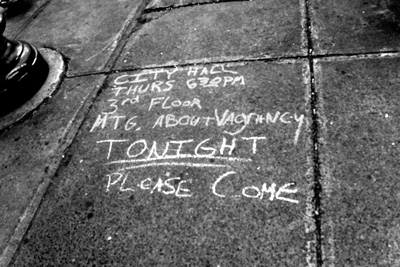 CITY HALL
THURS 630PM
3rd FLOOR
MTG. ABOUT VAgANCY
TONIGHT
PLEASE COME